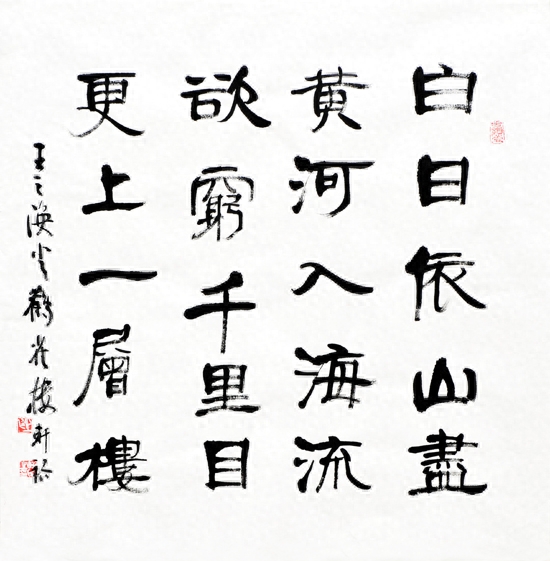 白日依山盡
黄河入海流
欲窮千里目
更上一層樓
王之渙登鸛雀樓軒